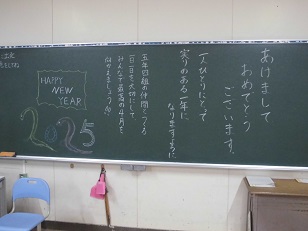 あけまして
おめでとう
ございます。
一人ひとりにとって
実りのある一年に
なりますように
五年四組の仲間とつくる
一日一日を大切にして
みんなで最高の4月を
向かえましょう
HAPPY
NEW
YEAR
2025